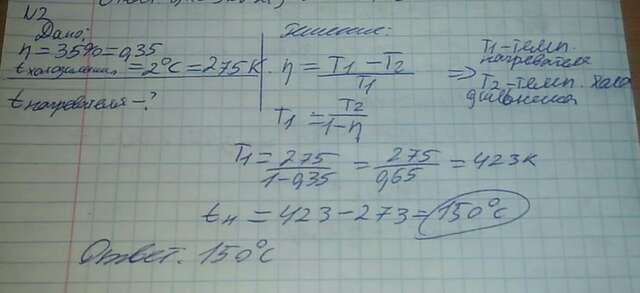 №2
Дано:
η = 35% = 0,35
t холодильника = 2°C = 275K.
t нагревателя - ?
Решение:
η = T₁ - T₂ / T₁ ⇒
T₁ - темп. нагревателя
T₂ - темп. холодильника
T₁ = T₂ / 1-η
T₁ = 275 / 1-0,35 = 275 / 0,65 = 423K
tн = 423 - 273 = 150°C
Ответ. 150°C